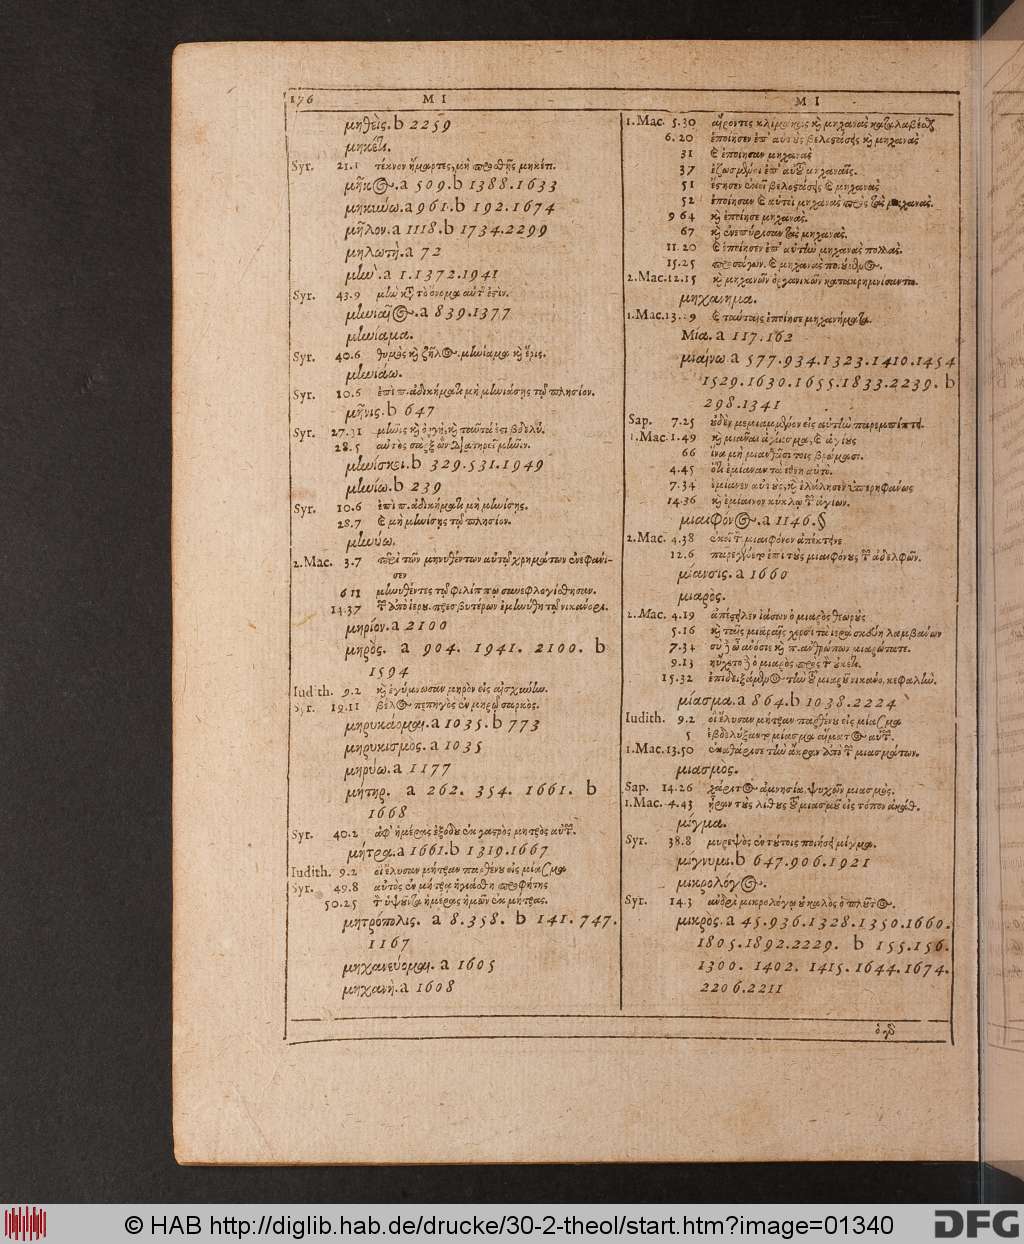 176 M I M I
μηθεὶς. b 2259
μηκέτι.
Syr. 21.1 τέκνον ἥμαρτες, μὴ προσθῇς μηκέτι.
μῆκος. a 509. b 1388. 1633
μηκύνω. a 961. b 192. 1674
μῆλον. a 1118. b 1734. 2299
μηλωτὴ. a 72
μὴν. a 1. 1372. 1941
Syr. 43.9 μὴν κατὰ τὸ ὄνομα αὐτῆς ἐστὶν.
μηνιαῖος. a 839. 1377
μηνίαμα.
Syr. 40.6 θυμὸς καὶ ζῆλος. μηνίαμα καὶ ἔρις.
μηνιάω.
Syr. 10.6 ἐπὶ π. ἀδικήματι μὴ μηνιάσῃς τῷ πλησίον.
μῆνις. b 647
Syr. 27.31 μῆνις καὶ ὀργὴ, καὶ ταῦτά ἐστι βδελύ.
28.5 αὐτὸς σὰρξ ὢν διατηρεῖ μῆνιν.
μηνίσκοι. b 329. 531. 1949
μηνίω. b 239
Syr. 10.6 ἐπὶ π. ἀδικήματι μὴ μηνίσῃς.
28.7 καὶ μὴ μηνίσῃς τῷ πλησίον.
μηνύω.
2. Mac. 3.7 περὶ τῶν μηνυθέντων αὐτῷ χρημάτων ἐνεφάνι-
σεν
6 11 μηνυθέντες τῷ φιλίππῳ συνεφλογίσθησαν.
14.37 τῶν ἀπὸ ἱερου. πρεσβυτέρων ἐμηνύθη τῷ νικάνορι.
μηρίον. a 2100
μηρὸς. a 904. 1941. 2100. b
1594
Iudith. 9.2 καὶ ἐγύμνωσαν μηρὸν εἰς αἰσχύνην.
Syr. 19.11 βέλος πεπηγὸς ἐν μηρῷ σαρκὸς.
μηρυκάομαι. a 1035. b 773
μηρυκισμὸς. a 1035
μηρύω. a 1177
μήτηρ. a 262. 354. 1661. b
1668
Syr. 40.2 ἀφ' ἡμέρας ἐξόδου ἐκ γαστρὸς μητρὸς αὐτῶν.
μήτρα. a 1661. b 1319. 1667
Iudith. 9.2 οἳ ἔλυσαν μήτραν παρθένου εἰς μίασμα
Syr. 49.8 αὐτὸς ἐν μήτρᾳ ἡγιάσθη προφήτης
50.25 τὸν ὑψοῦντα ἡμέρας ἡμῶν ἐκ μήτρας.
μητρόπολις. a 8. 358. b 141. 747.
1167
μηχανεύομαι. a 1605
μηχανὴ. a 1608
1. Mac. 5.30 αἴροντες κλίμακας καὶ μηχανὰς καταλαβέσθαι
6.20 ἐποίησεν ἐπ' αὐτοὺς βελοστάσεις καὶ μηχανὰς
31 καὶ ἐποίησαν μηχανὰς
37 ἐζωσμένοι ἐπ' αὐτοῦ μηχαναῖς.
51 ἔστησεν ἐκεῖ βελοστάσεις καὶ μηχανὰς
52 ἐποίησαν καὶ αὐτοὶ μηχανὰς πρὸς τὰς μηχανὰς.
9 64 καὶ ἐποίησε μηχανὰς.
67 καὶ ἐνεπύρισαν τὰς μηχανὰς.
11.20 καὶ ἐποίησεν ἐπ' αὐτὴν μηχανὰς πολλὰς.
15.25 προσάγων. καὶ μηχανὰς ποιούμενος.
2. Mac. 12.15 καὶ μηχανῶν ὀργανικῶν κατακρημνίσαντα.
μηχάνημα.
1. Mac. 13. 29 καὶ ταύταις ἐποίησε μηχανήματα.
Μία. a 117. 162
μιαίνω a 577. 934. 1323. 1410. 1454
1529. 1630. 1655. 1833. 2239. b
298. 1341
Sap. 7.25 οὐδὲν μεμιαμμένον εἰς αὐτὴν παρεμπίπτει.
1. Mac. 1.49 καὶ μιᾶναι ἁγίασμα, καὶ ἁγίους
66 ἵνα μὴ μιανθῶσι τοῖς βρώμασι.
4.45 ὅτι ἐμίαναν τὰ ἔθνη αὐτὸ.
7.34 ἐμίανεν αὐτοὺς, καὶ ἐλάλησεν ὑπερηφάνως
14.36 καὶ ἐμίαινον κύκλῳ τῶν ἁγίων.
μιαιφόνος. a 1146. §
2. Mac. 4.38 ἐκεῖ τὸν μιαιφόνον ἀπέκτεινε
12.6 παρεγένετο ἐπὶ τοὺς μιαιφόνους τῶν ἀδελφῶν.
μίανσις. a 1660
μιαρὸς.
2. Mac. 4.19 ἀπέστειλεν ἰάσων ὁ μιαρὸς θεωροὺς
5.16 καὶ ταῖς μιαραῖς χερσὶ τὰ ἱερὰ σκεύη λαμβάνων
7.34 σὺ δὲ ὦ ἀνόσιε καὶ π. ἀνθρώπων μιαρώτατε.
9.13 ηὔχετο δὲ ὁ μιαρὸς πρὸς τὸν οὐκέτι.
15.32 ἐπιδειξάμενος τὴν τοῦ μιαροῦ νικάνο. κεφαλὴν.
μίασμα. a 864. b 1038. 2224
Iudith. 9.2 οἳ ἔλυσαν μήτραν παρθένου εἰς μίασμα
5 ἐβδελύξαντο μίασμα αἵματος αὐτῶν.
1. Mac. 13.50 ἐκαθάρισε τὴν ἄκραν ἀπὸ τῶν μιασμάτων.
μιασμὸς.
Sap. 14.26 χάριτος ἀμνησία. ψυχῶν μιασμὸς.
1. Mac. 4.43 ἦραν τοὺς λίθους τοῦ μιασμοῦ εἰς τόπον ἀκάθ.
μίγμα.
Syr. 38.8 μυρεψὸς ἐν τούτοις ποιήσει μίγμα.
μίγνυμι. b 647. 906. 1921
μικρολόγος.
Syr. 14.3 ἀνδρὶ μικρολόγῳ οὐ καλὸς ὁ πλοῦτος.
μικρὸς. a 45. 936. 1328. 1350. 1660.
1805. 1892. 2229. b 155. 156.
1300. 1402. 1415. 1644. 1674.
2206. 2211
© HAB http://diglib.hab.de/drucke/30-2-theol/start.htm?image=01340 DFG